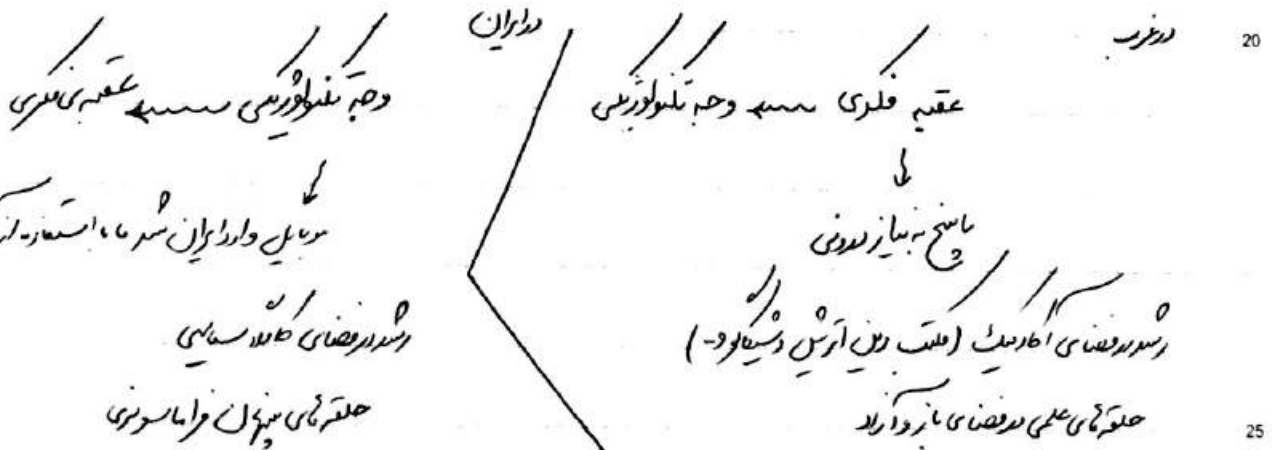 20 در غرب
عقبه فکری ← وجه تکنولوژیکی
↓
پاسخ به نیاز درونی
رشد در فضای آکادمیک (مکتب وین اتریش و شیکاگو و-)
25 حلقه‌های علمی در فضای باز و آزاد
در ایران
وجه تکنولوژیکی ← عقبه‌ی فکری
↓
موبایل وارد ایران شد ما با استفاده از
رشد در فضای کاملا سیاسی
حلقه‌های پنهان فراماسونری